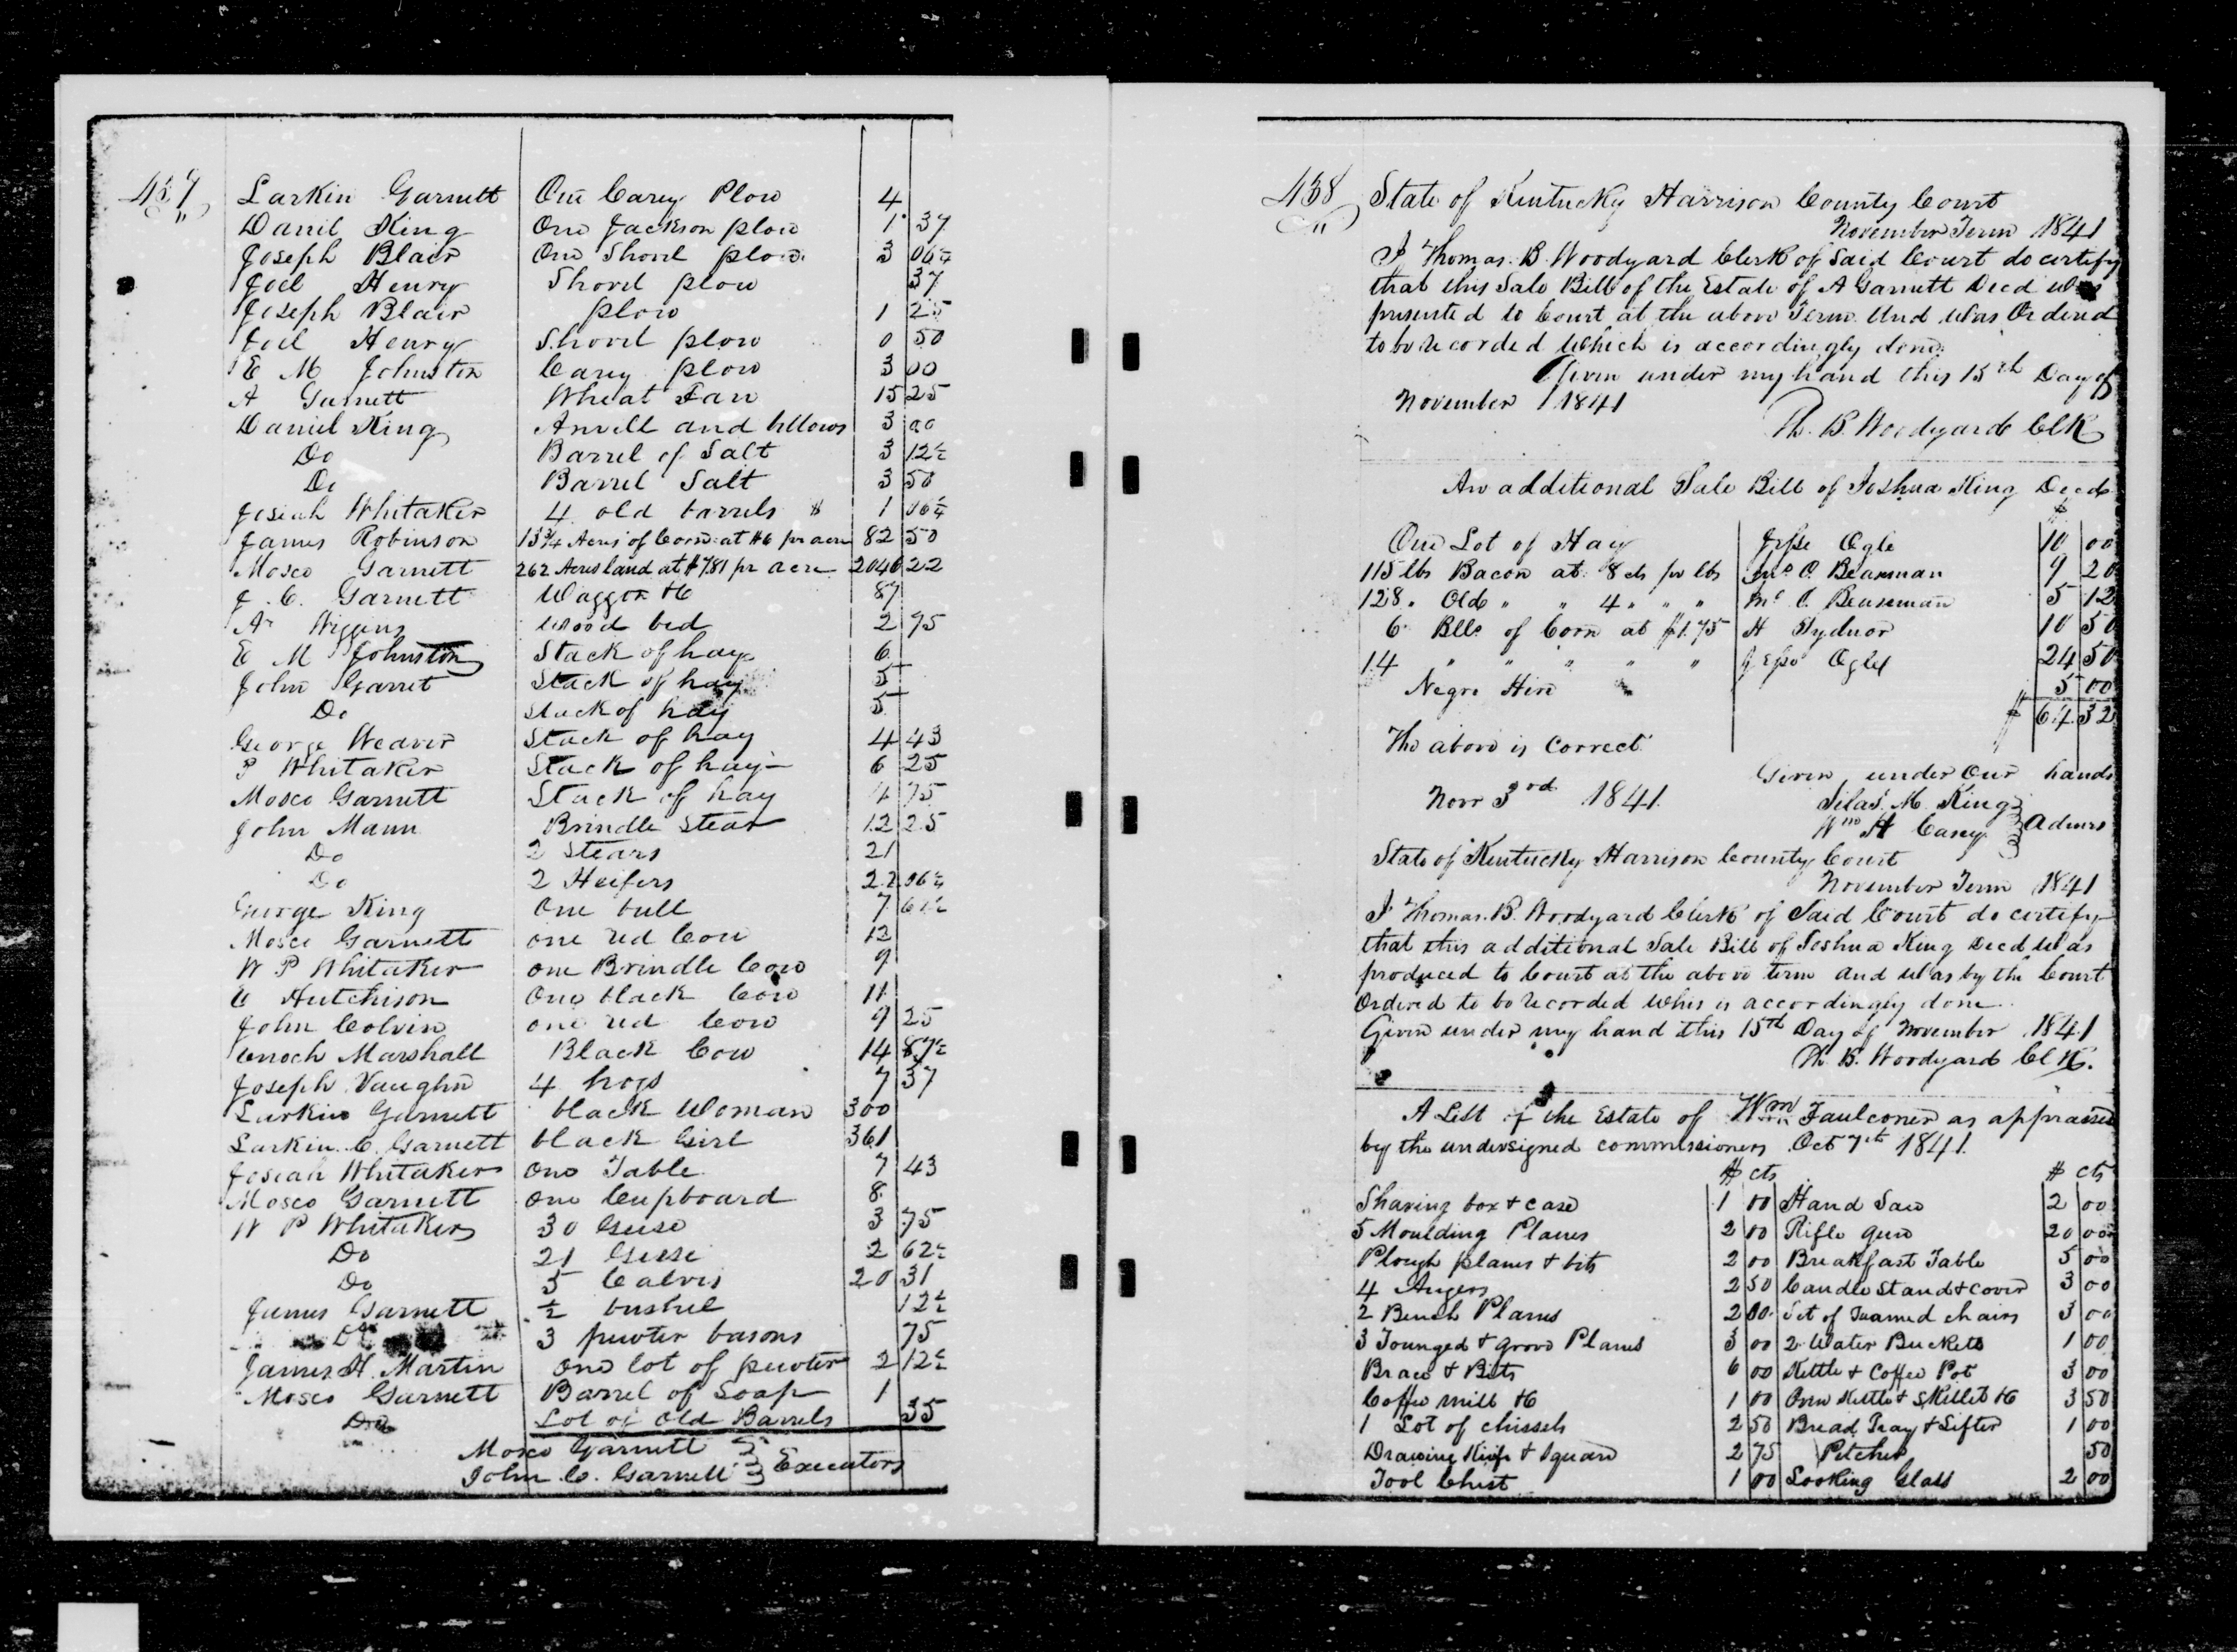 437
Larkin Garnett One Carey Plow 4
Daniel King One Jackson plow 1 37
Joseph Blair One Shovel plow 3 06¼
Joel Henry Shovel plow 37
Joseph Blair plow 1 25
Joel Henry Shovel plow 0 50
E M Johnston Carey plow 3 00
A Garnett Wheat Fan 15 25
Daniel King Anvill and bellows 3 00
Do Barrel of Salt 3 12½
Do Barrel Salt 3 50
Josiah Whitaker 4 old barrels $ 1 06¼
James Robinson 13¾ Acres of Corn at $6 pr acre 82 50
Mosco Garnett 262 Acres land at $7.81 pr acre 2046 22
J. C. Garnett Waggon &c 87
Wood bed 2 95
E M Johnston Stack of hay 6
John Garret Stack of hay 5
Do stack of hay 5
George Weaver Stack of hay 4 43
P Whitaker Stack of hay 6 25
Mosco Garnett Stack of hay 4 75
John Mann Brindle Stear 12 25
Do 2 Stears 21
Do 2 Heifers 22 06¼
George King One bull 7 61½
Mosco Garnett one red Cow 12
W P Whitaker one Brindle Cow 9
C Hutchison One black Cow 11
John Colvin one red Cow 9 25
Enoch Marshall Black Cow 14 87½
Joseph Vaughn 4 hogs 7 37
Larkin Garnett black Woman 300
Larkin C. Garnett black Girl 361
Josiah Whitaker One Table 7 43
Mosco Garnett one Cupboard 8
W P Whitaker 30 Geese 3 75
Do 21 Geese 2 62½
Do 5 Calves 20 31
James Garnett ½ bushel 12½
Do 3 pewter basons 75
James H. Martin one lot of pewter 2 12½
Mosco Garnett Barrel of Soap 1
Do Lot of Old Barrels 35
Mosco Garnett
John C. Garnett } Executors
438 State of Kentucky Harrison County Court
November Term 1841
I Thomas. B. Woodyard Clerk of Said Court do certify
that this Sale Bill of the Estate of A Garnett Decd was
presented to Court at the above Term. And was Ordered
to be recorded which is accordingly done.
Given under my hand this 15th Day of
November 1841
Th. B. Woodyard Clk
An additional Sale Bill of Joshua King Decd
$
One Lot of Hay Jesse Ogle 10 00
115 lbs Bacon at 8 cts pr lbs O. Beasman 9 20
128 " Old " " 4 " " " O. Beasman 5 12
6 Blls of Corn at $1.75 H Sydnor 10 50
14 " " " " " Jesse Ogle 24 50
Negro Hire " 5 00
$ 64 32
The above is Correct
Given under Our hands
Novr 3rd 1841. Silas. M. King
Wm H Casey } Admrs
State of Kentucky Harrison County Court
November Term 1841
I Thomas. B. Woodyard Clerk of Said Court do certify
that this additional Sale Bill of Joshua King Decd was
produced to Court at the above term and was by the Court
Ordered to be recorded whis is accordingly done.
Given under my hand this 15th Day of November 1841
Th. B. Woodyard Clk.
A List of the Estate of Wm Faulconer as appraised
by the undersigned commissioners Oct 7th 1841.
$ cts $ cts
Shaving box & case 1 00 Hand Saw 2 00
5 Moulding Planes 2 00 Rifle Gun 20 00
Plough planes & bits 2 00 Breakfast Table 5 00
4 Augers 2 50 Candle Stand & cover 3 00
2 Bench Planes 2 00 Set of Framed chairs 3 00
3 Tounged & Grove Planes 3 00 2 Water Buckets 1 00
Brace & Bits 6 00 Kettle & Coffee Pot 3 00
Coffee mill &c 1 00 Oven Kettle & Skillet &c 3 50
1 Lot of chissels 2 50 Bread Tray & Sifter 1 00
Drawing Knife & Square 2 75 Pitcher 50
Tool Chest 1 00 Looking Glass 2 00